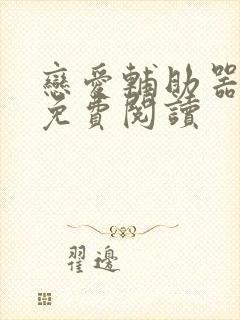 戀愛輔助器
免費閱讀
翟邊